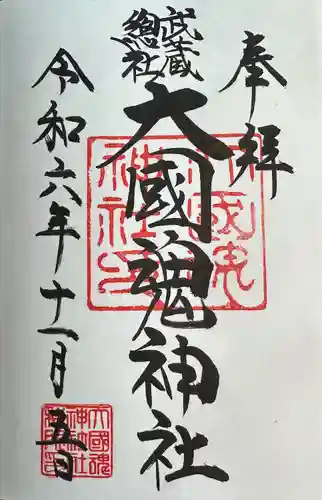 奉拝
武蔵
總社
大國魂神社
令和六年十一月五日
大國魂
神社印
大國魂
神社